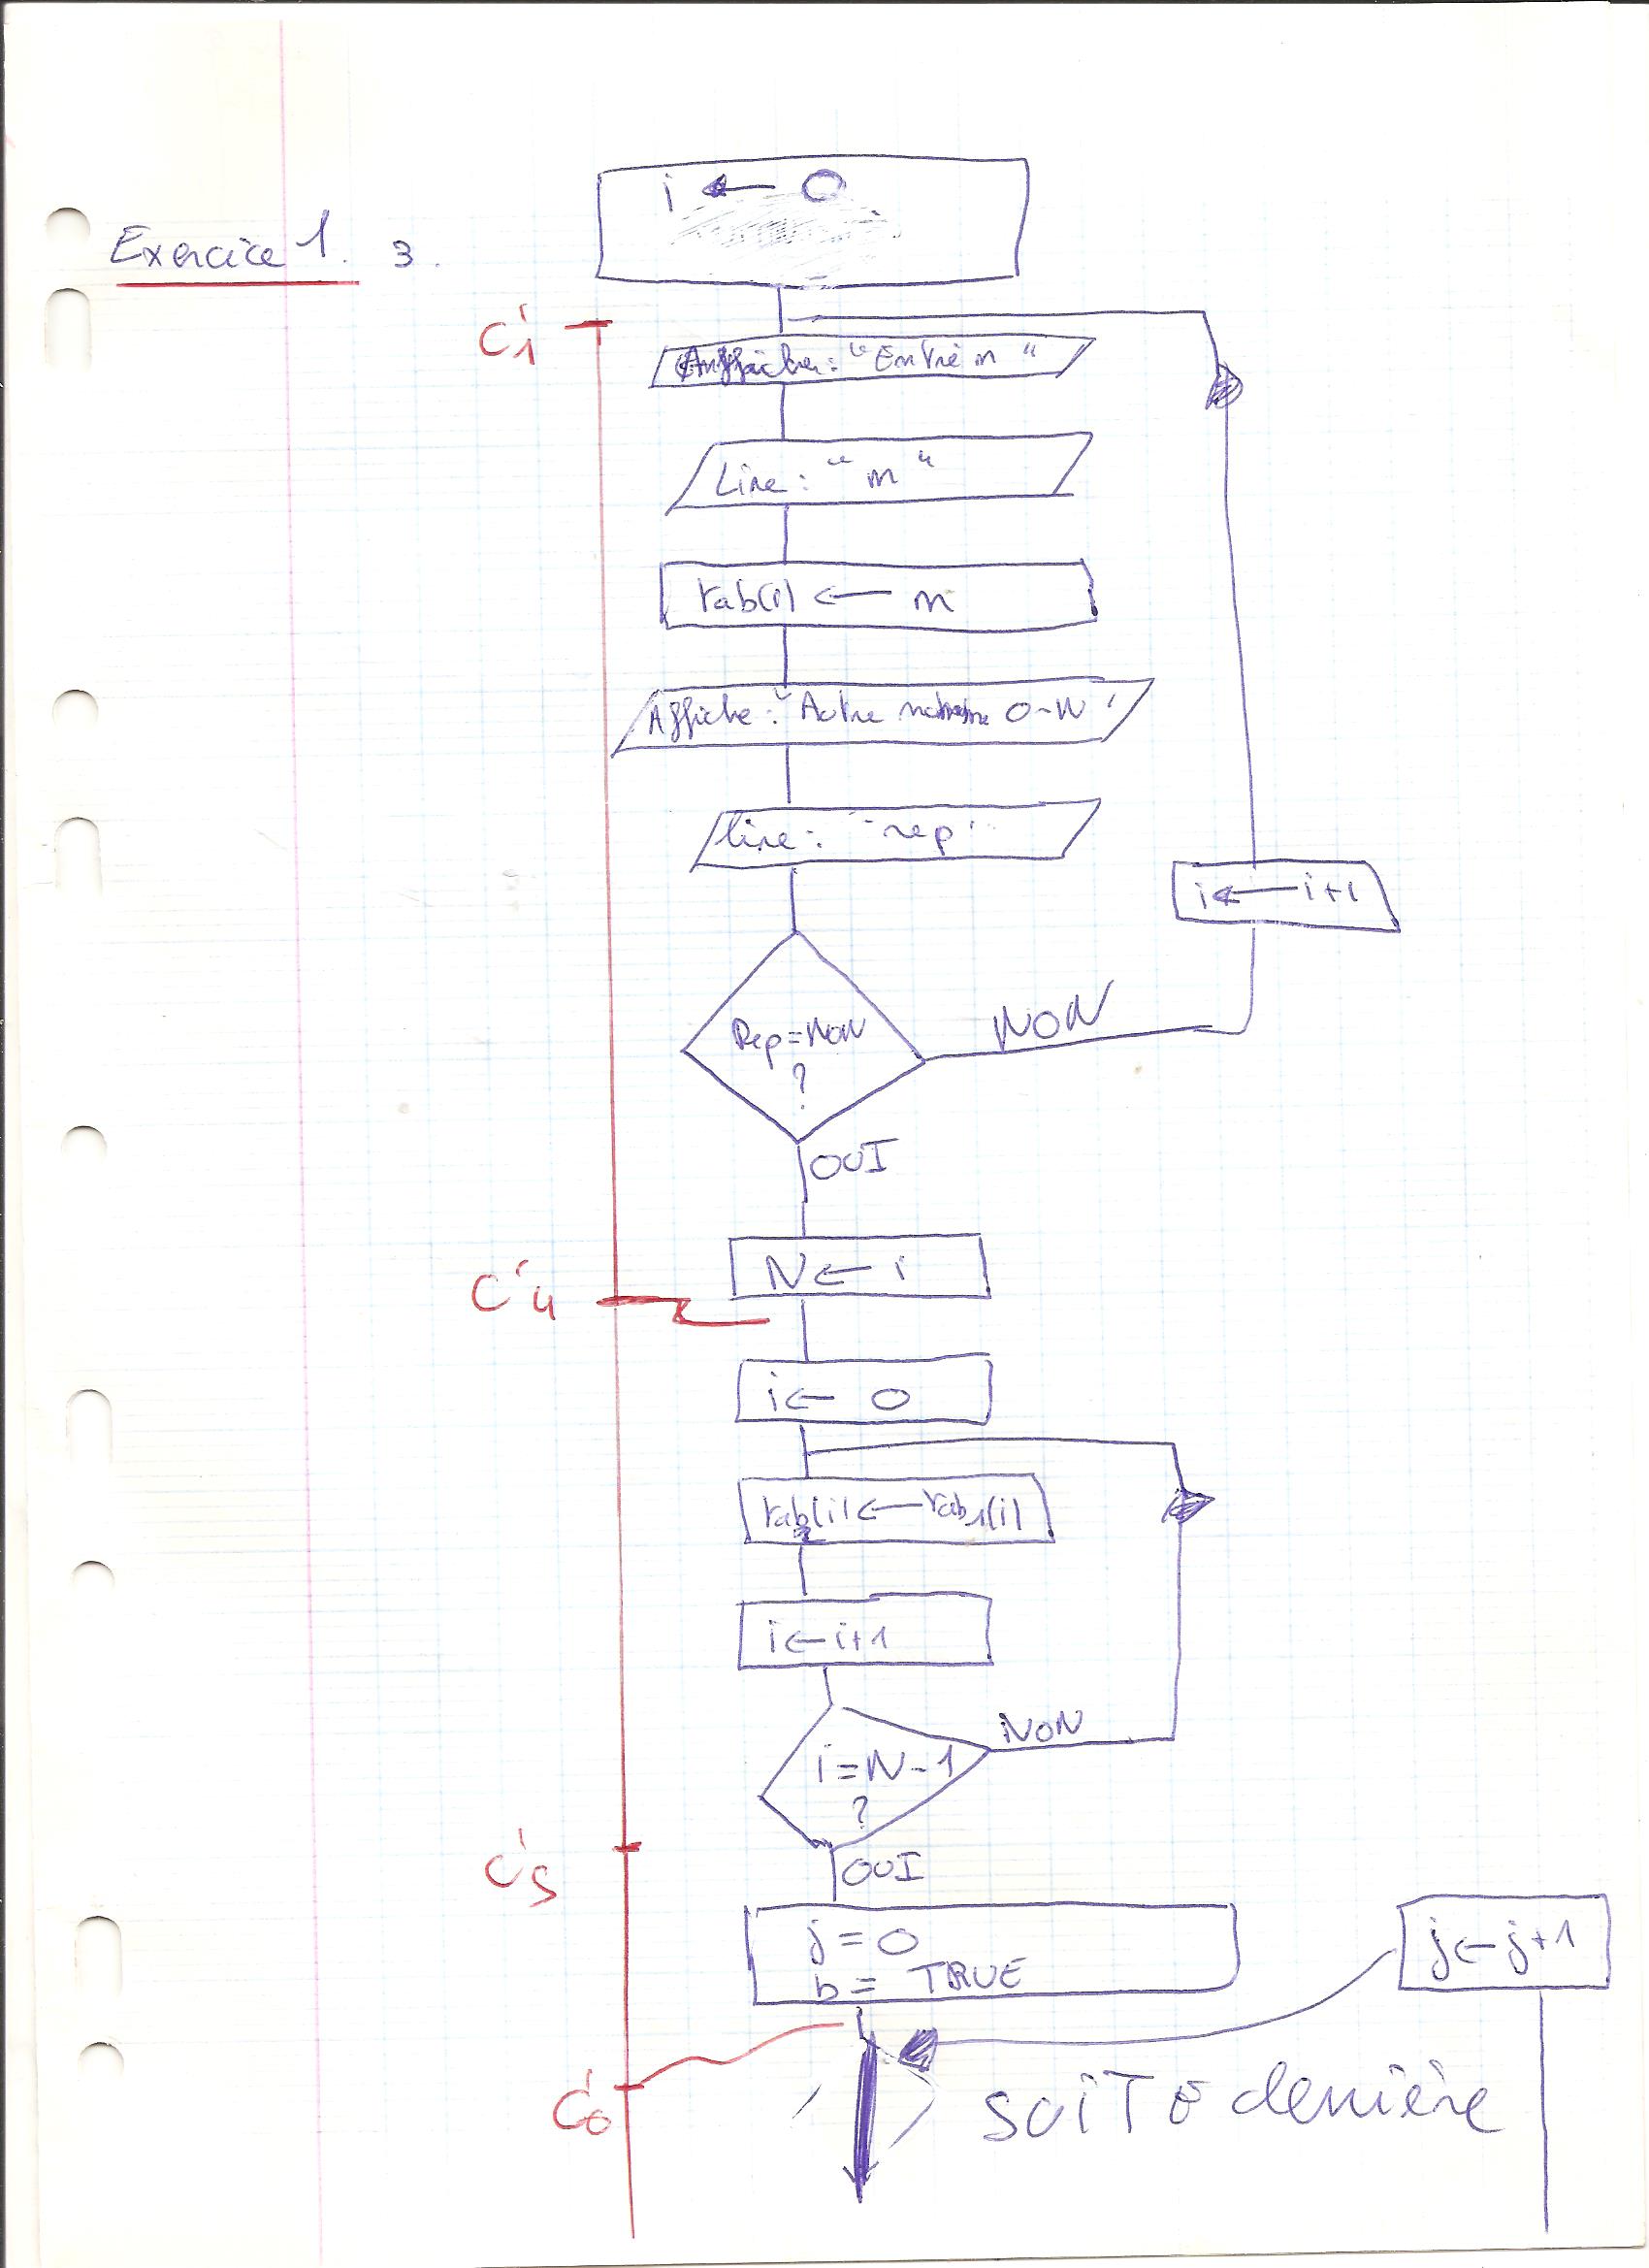 i ← 0
Exercice 1. 3.
C'1
Affiche: "Entre n"
Lire: "n"
tab(i) ← n
Affiche: "Autre O-N"
lire: "rep"
i ← i+1
Rep=NON
?
NON
OUI
N ← i
C'4
i ← 0
tab(i) ← tab1(i)
i ← i+1
NON
i=N-1
?
C'5
OUI
j = 0
b = TRUE
j ← j+1
C'6
SUITE derrière